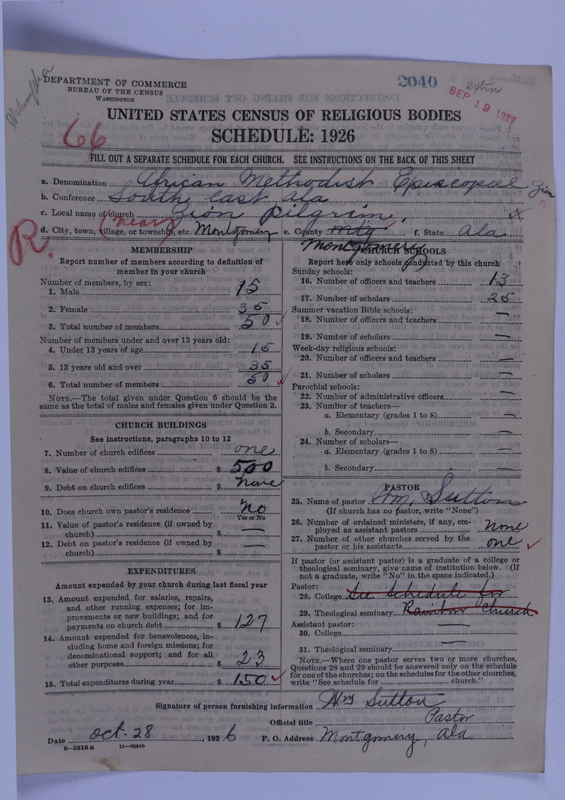 DEPARTMENT OF COMMERCE
BUREAU OF THE CENSUS
WASHINGTON
2040
SEP 19 1927
66
UNITED STATES CENSUS OF RELIGIOUS BODIES
SCHEDULE: 1926
FILL OUT A SEPARATE SCHEDULE FOR EACH CHURCH. SEE INSTRUCTIONS ON THE BACK OF THIS SHEET
a. Denomination African Methodist Episcopal Zion
b. Conference South east Ala
c. Local name of church Zion pilgrim
(near)
d. City, town, village, or township, etc. Montgomery e. County Mtg f. State Ala
Montgomery
R.
MEMBERSHIP
Report number of members according to definition of
member in your church
Number of members, by sex:
1. Male 15
2. Female 35
3. Total number of members 50
Number of members under and over 13 years old:
4. Under 13 years of age 15
5. 13 years old and over 35
6. Total number of members 50
NOTE.—The total given under Question 6 should be the
same as the total of males and females given under Question 3.
CHURCH BUILDINGS
See instructions, paragraphs 10 to 12
7. Number of church edifices one
8. Value of church edifices $ 500
9. Debt on church edifices $ none
10. Does church own pastor's residence? No
Yes or No
11. Value of pastor's residence (if owned by
church) $ —
12. Debt on pastor's residence (if owned by
church) $ —
EXPENDITURES
Amount expended by your church during last fiscal year
13. Amount expended for salaries, repairs,
and other running expenses; for im-
provements or new buildings; and for
payments on church debt $ 127
14. Amount expended for benevolences, in-
cluding home and foreign missions; for
denominational support; and for all
other purposes $ 23
15. Total expenditures during year $ 150
CHURCH SCHOOLS
Report here only schools conducted by this church
Sunday schools:
16. Number of officers and teachers 13
17. Number of scholars 25
Summer vacation Bible schools:
18. Number of officers and teachers —
19. Number of scholars —
Week-day religious schools:
20. Number of officers and teachers —
21. Number of scholars —
Parochial schools:
22. Number of administrative officers —
23. Number of teachers—
a. Elementary (grades 1 to 8) —
b. Secondary —
24. Number of scholars—
a. Elementary (grades 1 to 8) —
b. Secondary —
PASTOR
25. Name of pastor Wm. Sutton
(If church has no pastor, write "None")
26. Number of ordained ministers, if any, em-
ployed as assistant pastors none
27. Number of other churches served by the
pastor or his assistants one
If pastor (or assistant pastor) is a graduate of a college or
theological seminary, give name of institution below. (If
not a graduate, write "No" in the space indicated.)
Pastor:
28. College See Schedule for
29. Theological seminary Rainbow Church
Assistant pastor: —
30. College —
31. Theological seminary —
NOTE.—Where one pastor serves two or more churches,
Questions 28 and 29 should be answered only on the schedule
for one of the churches; on the schedules for the other churches,
write "See schedule for church."
Signature of person furnishing information Wm Sutton
Official title Pastor
Date Oct. 28, 1926 P. O. Address Montgomery, Ala
8—5518a 11—9224b